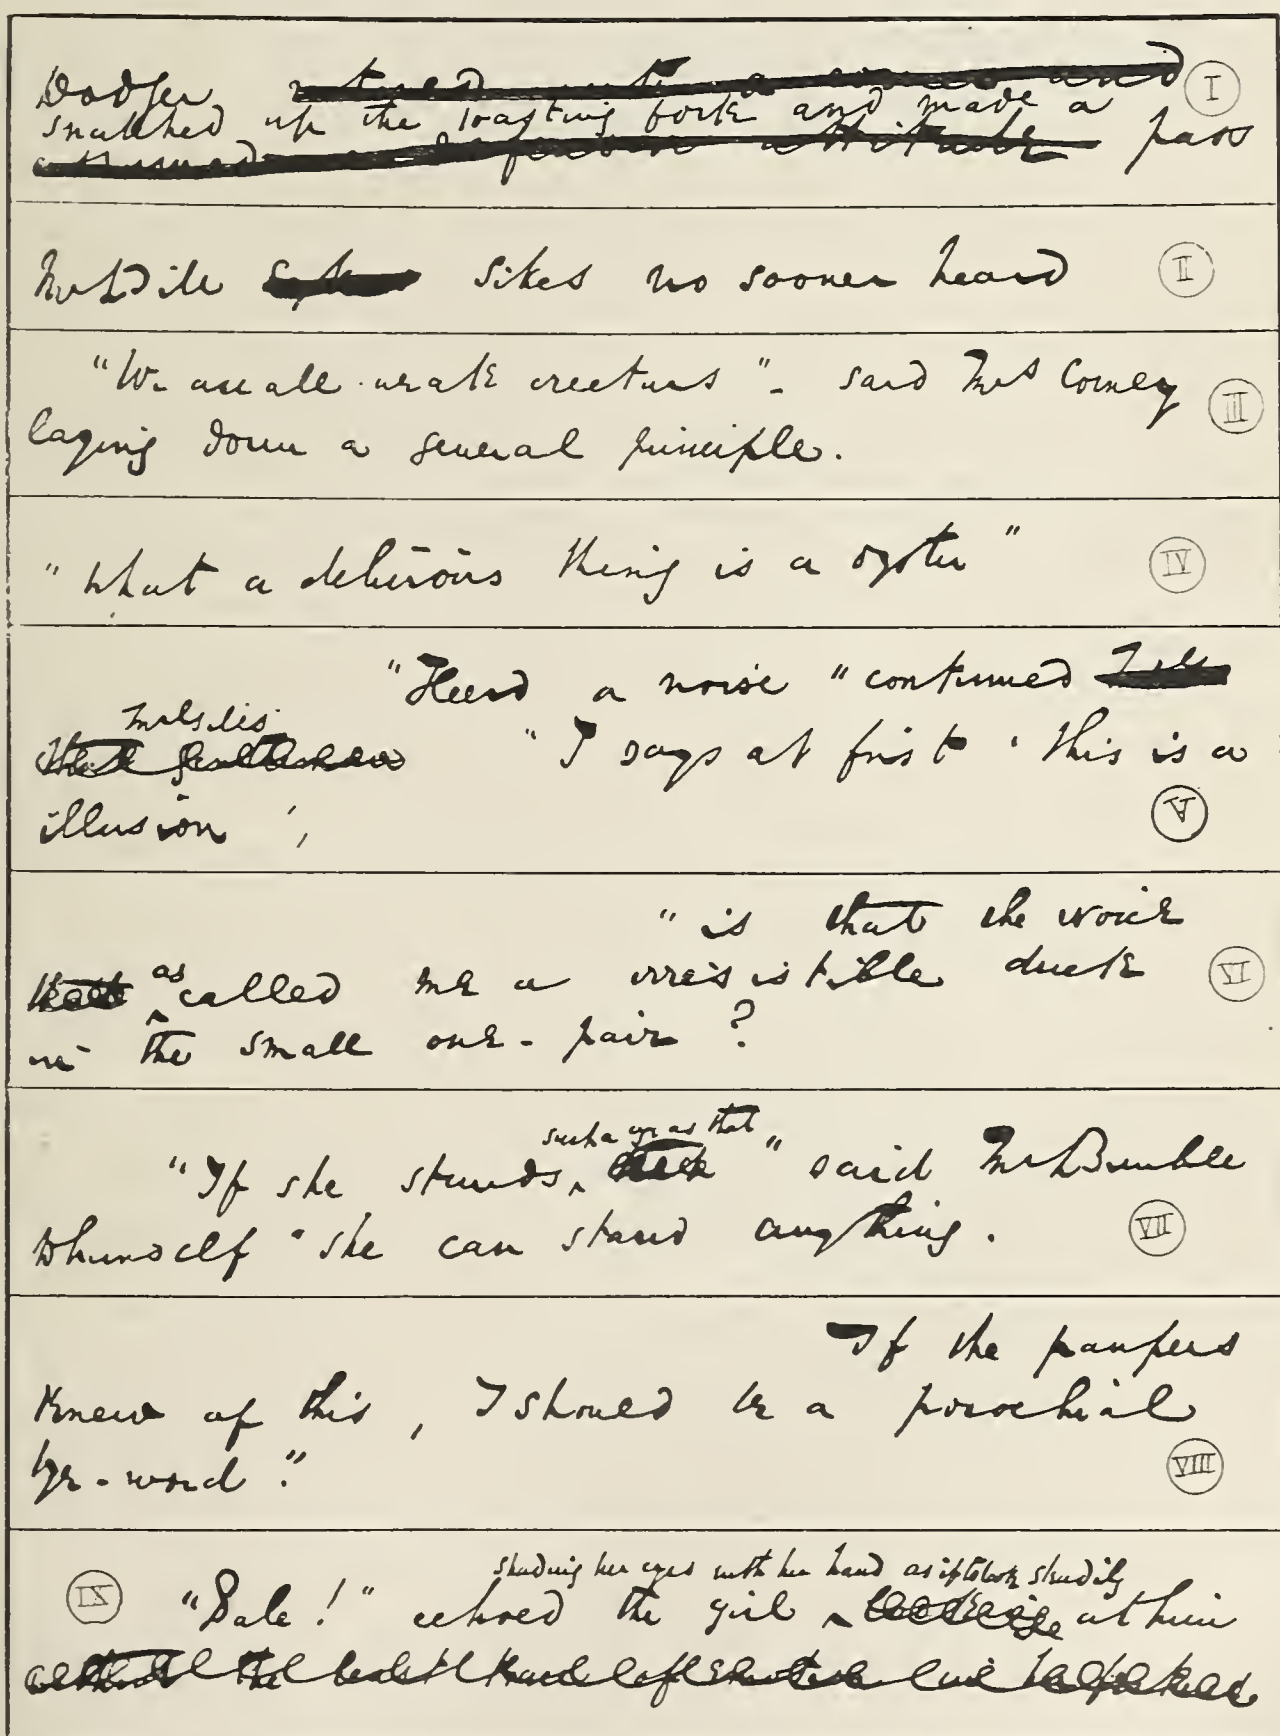 Dodger I
snatched up the toasting fork and made a pass
Mr Bill Sikes no sooner heard II
"We are all weak creeturs" - said Mrs Corney III
laying down a general principle.
"What a delicious thing is a oyster" IV
"Heerd a noise" continued
Mr Giles "I says at first 'this is a
illusion', V
"is that the woice
as called me a irresistible duck VI
in the small one-pair?
such a eye as that
"If she stands " said Mr Bumble
to himself "she can stand anything. VII
If the paupers
knew of this, I should be a porochial
bye-word." VIII
shading her eyes with her hand as if to look steadily
IX "Pale!" echoed the girl at him